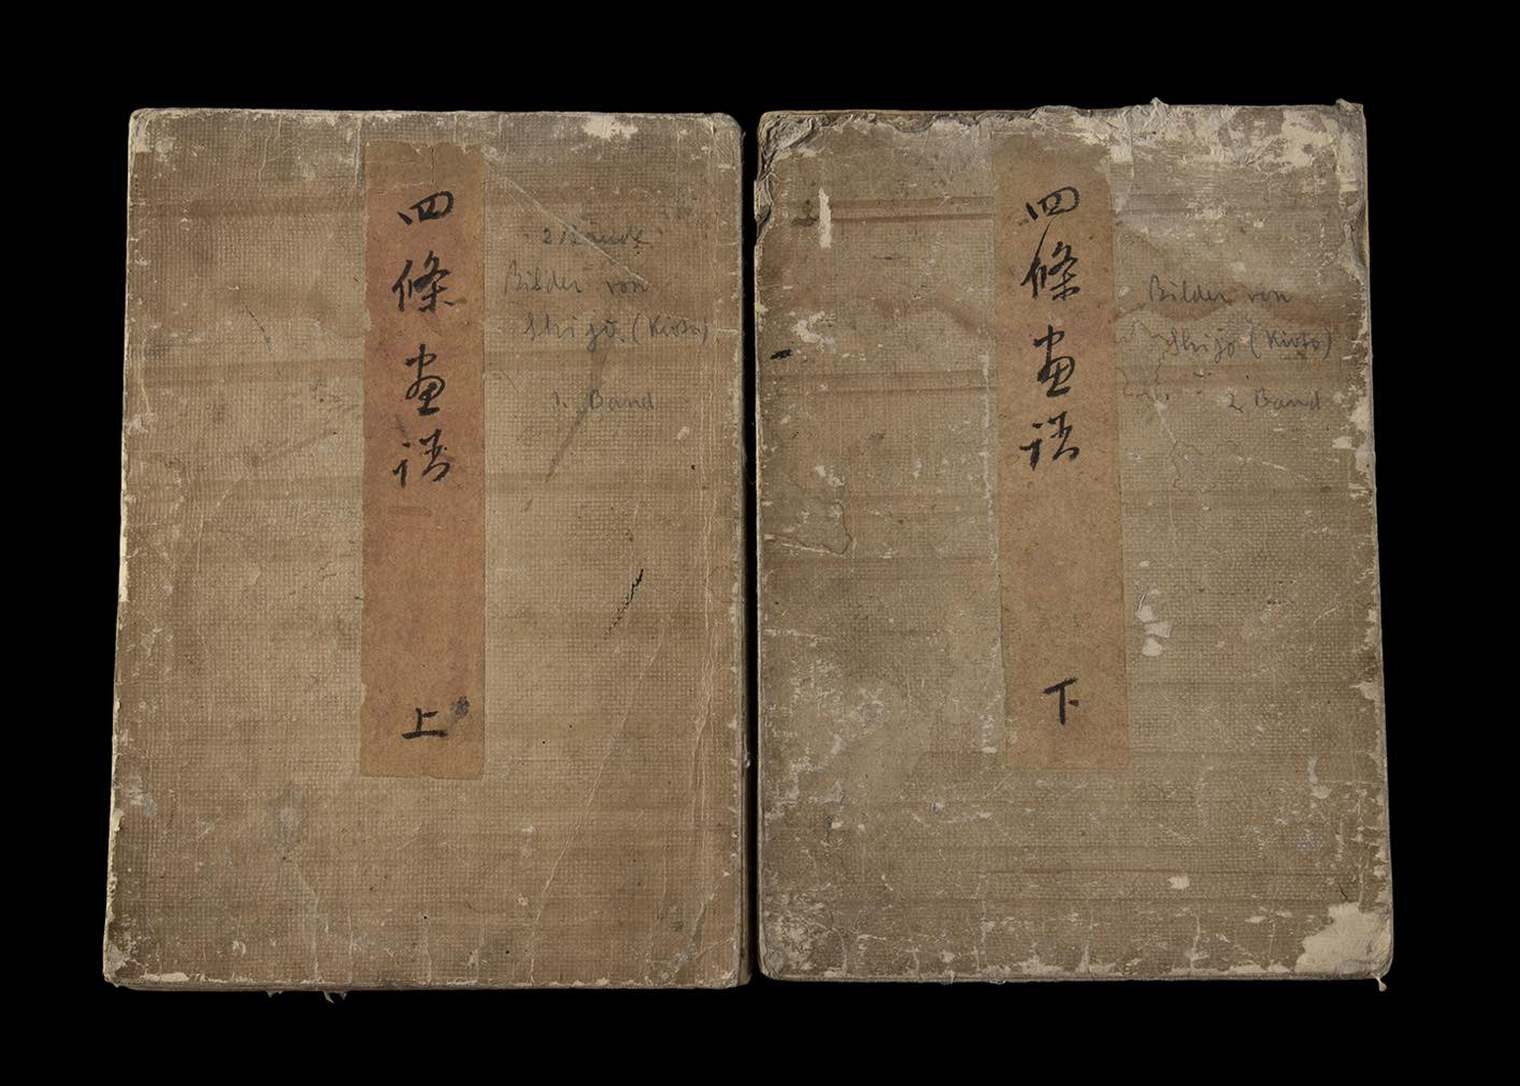 四條畫譜
上
2 Bände
Bilder von
Shijō. (Kioto)
1. Band
四條畫譜
下
Bilder von
Shijō (Kioto)
2. Band